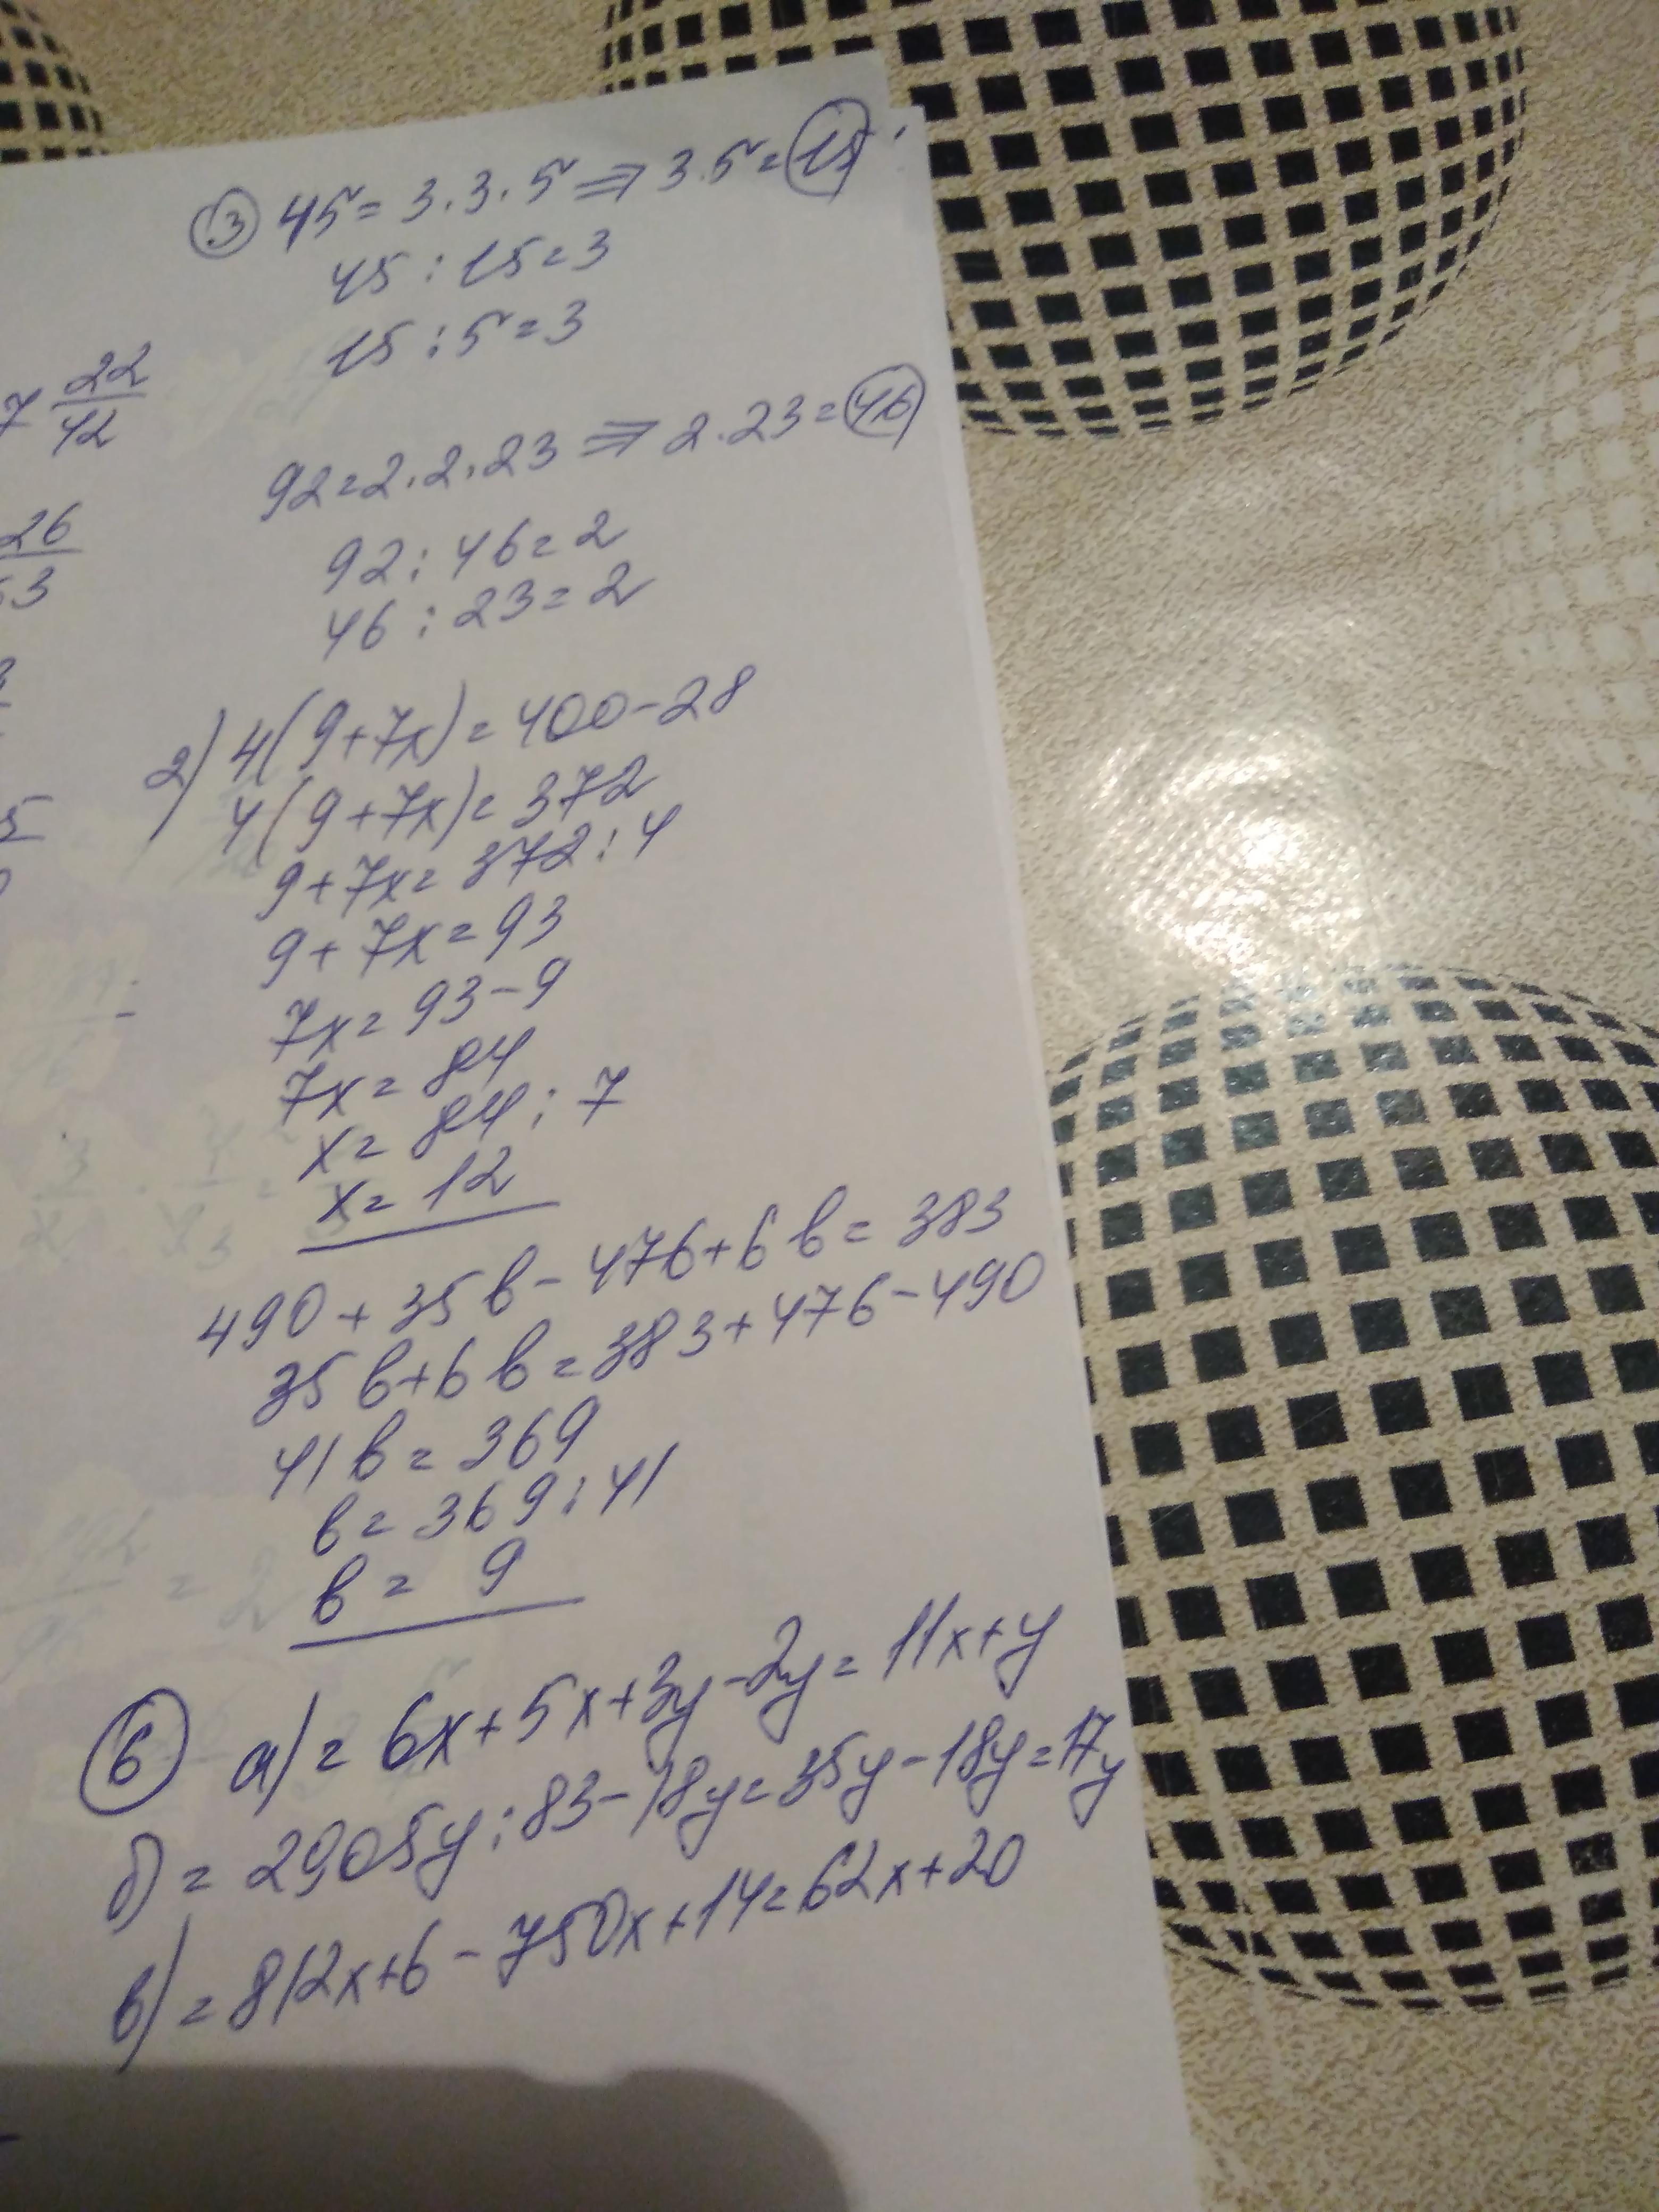 ③ 45 = 3.3.5 ⇒ 3.5 = 15
45 : 15 = 3
15 : 5 = 3
7 22/42
92 = 2.2.23 ⇒ 2.23 = 46
26
92 : 46 = 2
46 : 23 = 2
2) 4(9+7x) = 400-28
4(9+7x) = 372
9+7x = 372 : 4
9+7x = 93
7x = 93-9
7x = 84
x = 84 : 7
x = 12
490 + 35в - 476 + 6в = 383
35в + 6в = 383 + 476 - 490
41в = 369
в = 369 : 41
в = 9
⑥ а) = 6x + 5x + 3y - 2y = 11x + y
б) = 2905y : 83 - 18y = 35y - 18y = 17y
в) = 812x + 6 - 750x + 14 = 62x + 20